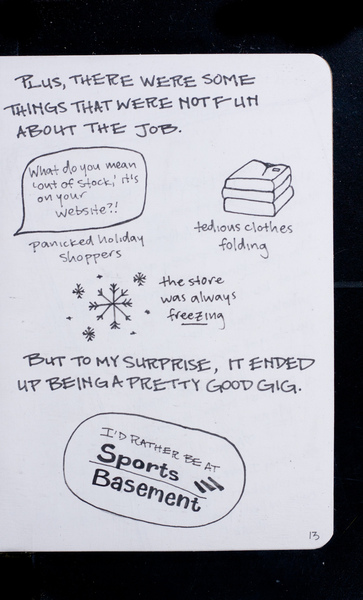 PLUS, THERE WERE SOME
THINGS THAT WERE NOT FUN
ABOUT THE JOB.
What do you mean
'out of stock,' it's
on your
website?!
panicked holiday
shoppers
tedious clothes
folding
the store
was always
freezing
BUT TO MY SURPRISE, IT ENDED
UP BEING A PRETTY GOOD GIG.
I'D RATHER BE AT
Sports
Basement
13